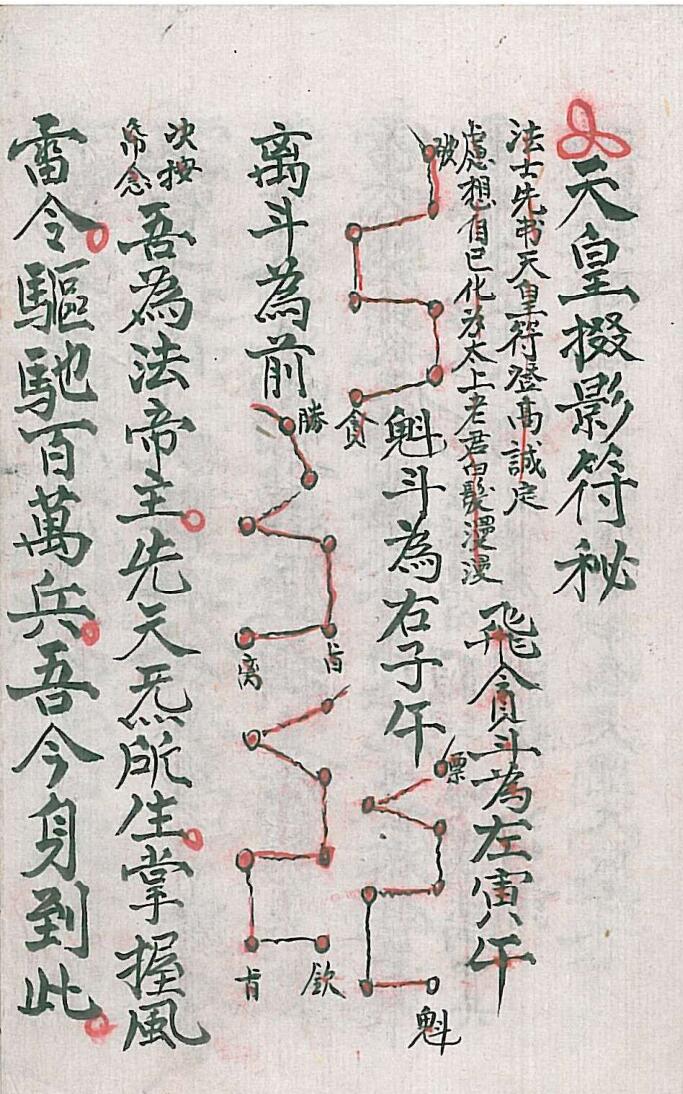 天皇掇影符秘
法士先书天皇符登高誠定
慮想自己化为太上老君白髮漫漫
飛貪斗為左寅午
破
貪
魁斗為右子午
票
魁
离斗為前
勝
占
离
欽
肯
次按
帋念
吾為法帝主先天炁所生掌握風
雷令驅馳百萬兵吾今身到此